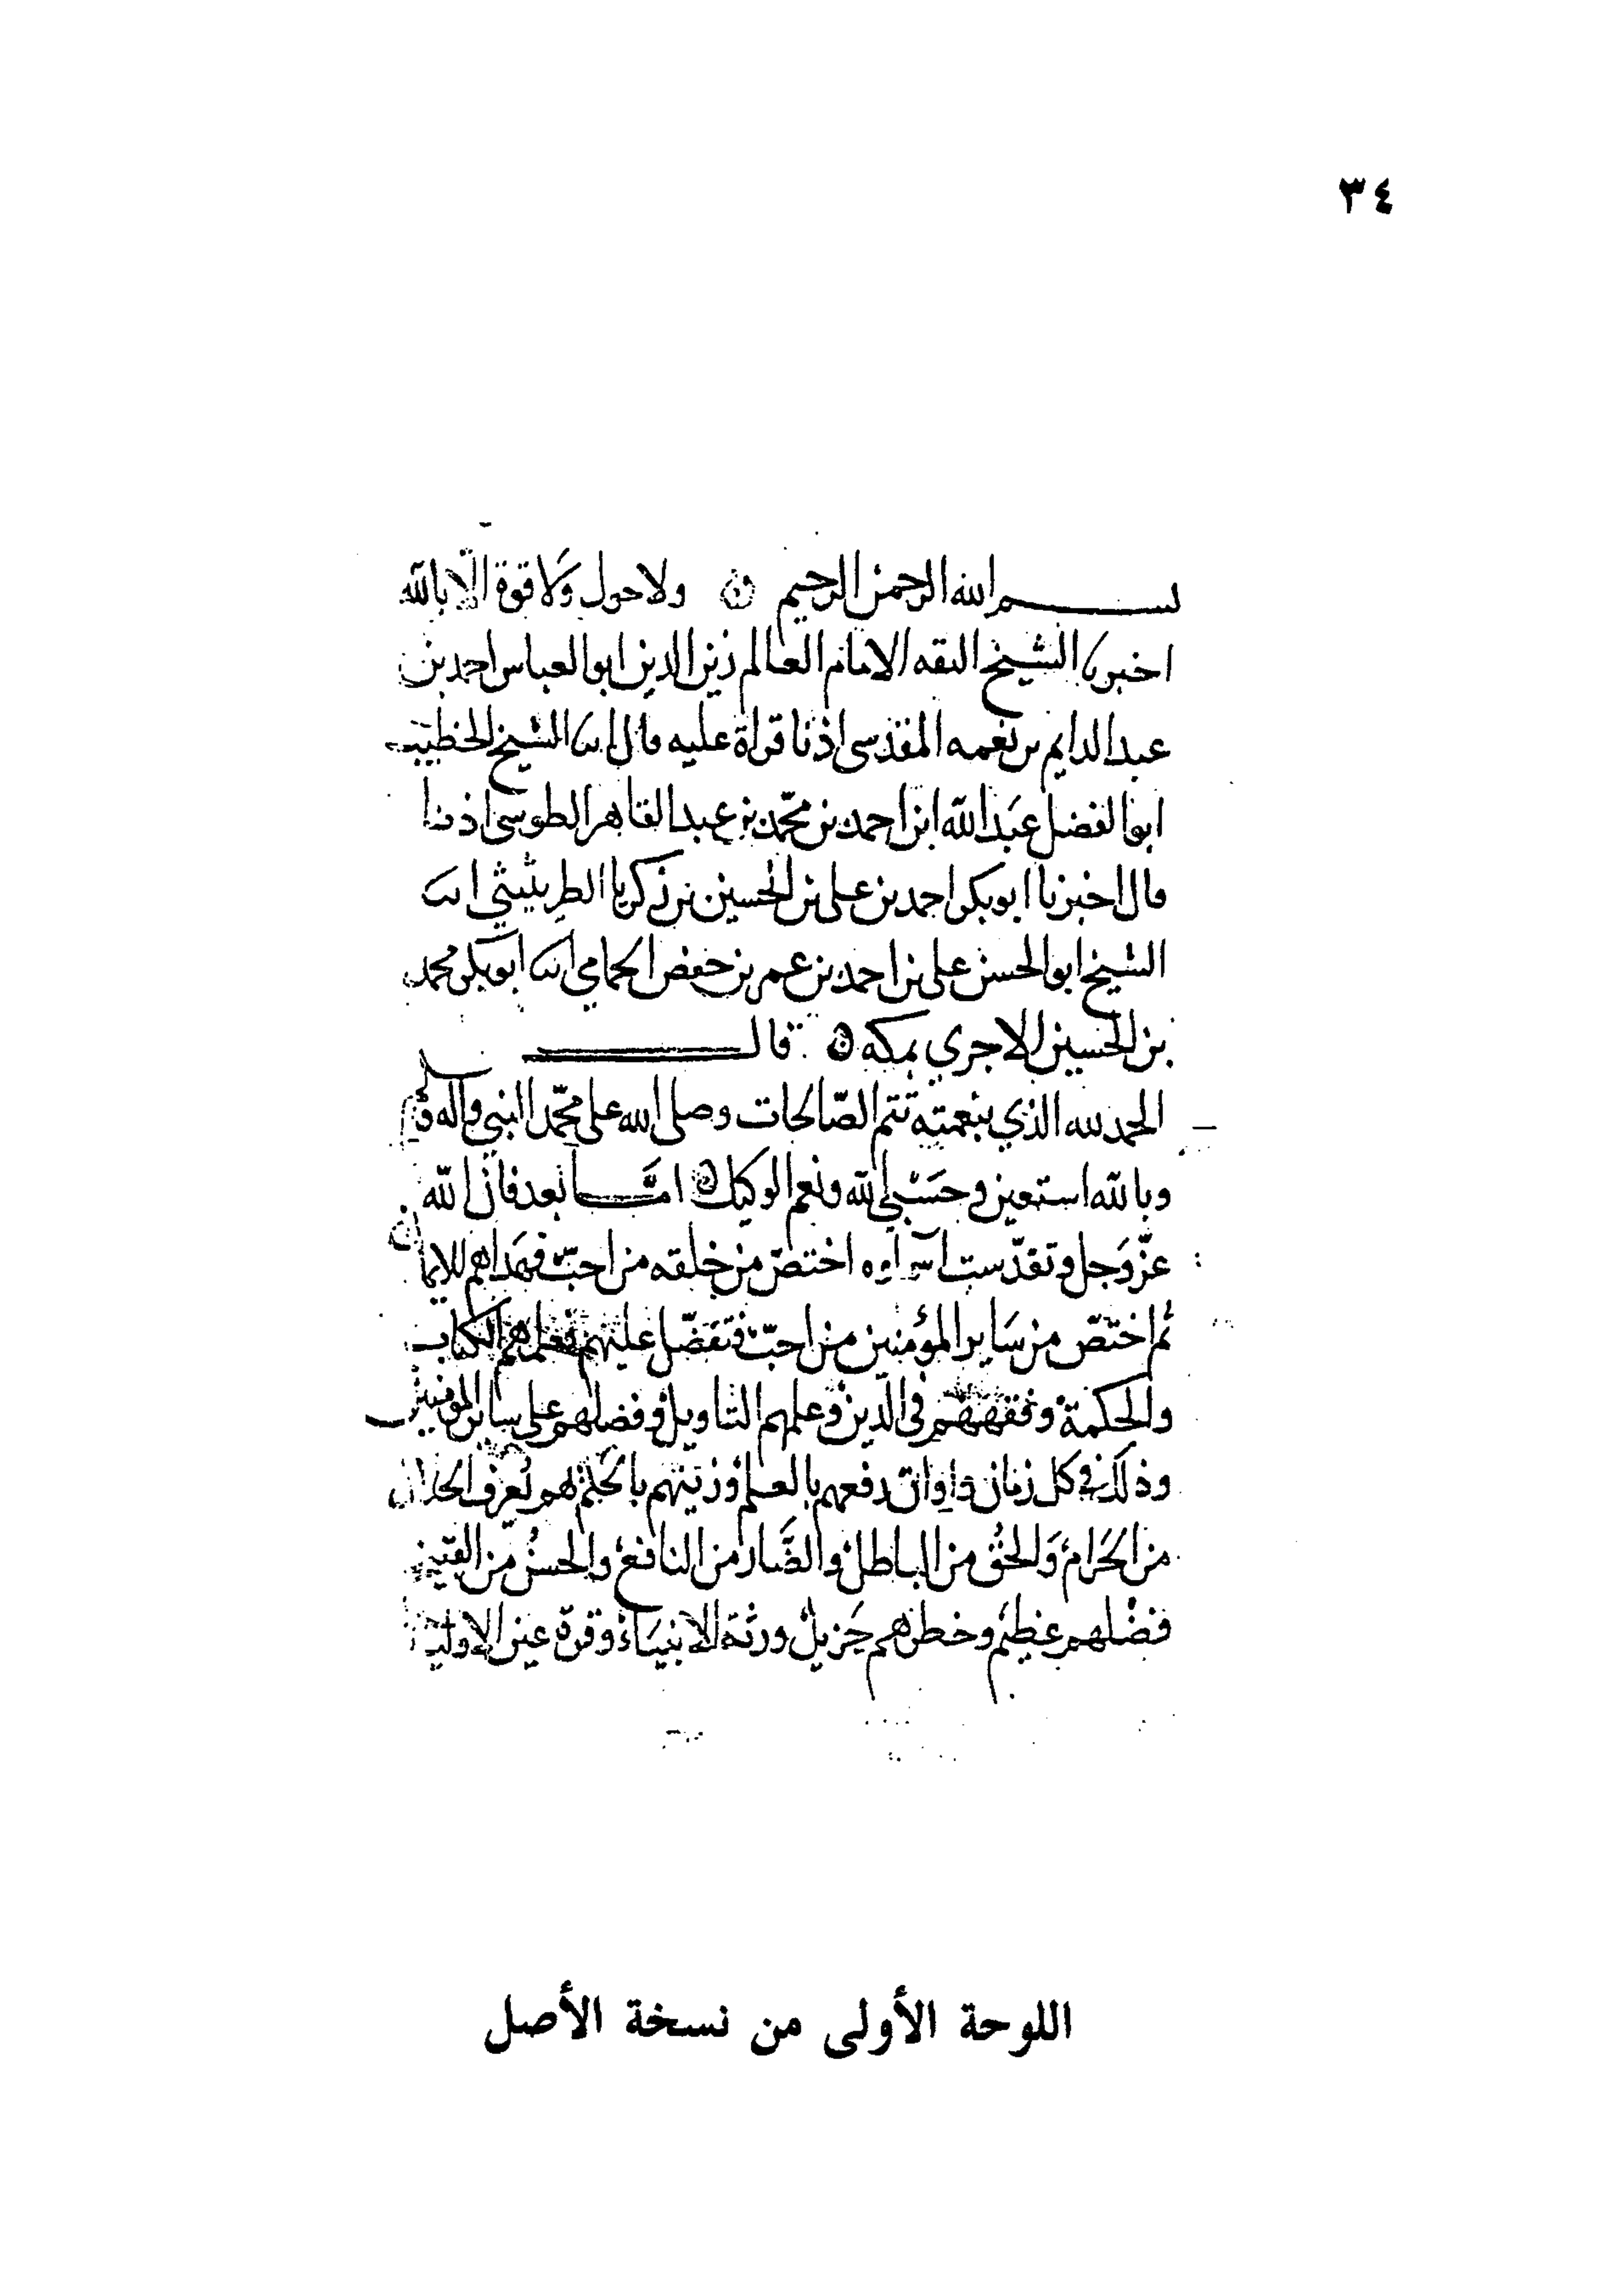 ٣٤
بسم الله الرحمن الرحيم ولا حول ولا قوة الا بالله
اخبرنا الشيخ الثقه الامام العالم زين الدين ابو العباس احمد بن
عبد الدايم بن نعمه المقدسي اذنا قراة عليه قال انا الشيخ الخطيب
ابو الفضل عبد الله ابن احمد بن محمد بن عبد القاهر الطوسي اذنا
قال اخبرنا ابو بكر احمد بن علي بن الحسين بن زكريا الطريثيثي انا
الشيخ ابو الحسن علي بن احمد بن عمر بن حفص الحمامي انا ابو بكر محمد
بن الحسين الاجري بمكه قال
الحمد لله الذي بنعمته تتم الصّالحات وصلى الله على محمّد النبي واله وسلم
وبالله استعين وحَسْبي الله ونعم الوكيل امّا بعد فان الله
عزّ وَجل وتقدّست اسماوه اختصّ من خلقه من احبّ فهَداهم للايمان
ثم اختصّ من سَاير المؤمنين من احبّ فتفضّل عليهم فعلمهم الكتاب
والحكمة وفقههم في الدّين وعلمهم التاويل وفضلهم على ساير المومنين
وذلك في كل زمان واوان رفعهم بالعلم وزينهم بالحلم بهم يعرف الحلال
من الحَرام وَالحق من الباطل والضّار من النافع والحسن من القبيح
فضلهم عظيم وخطرهم جَزيل ورثة الانبيَاء وقرة عين الاوليا
اللوحة الأولى من نسخة الأصل